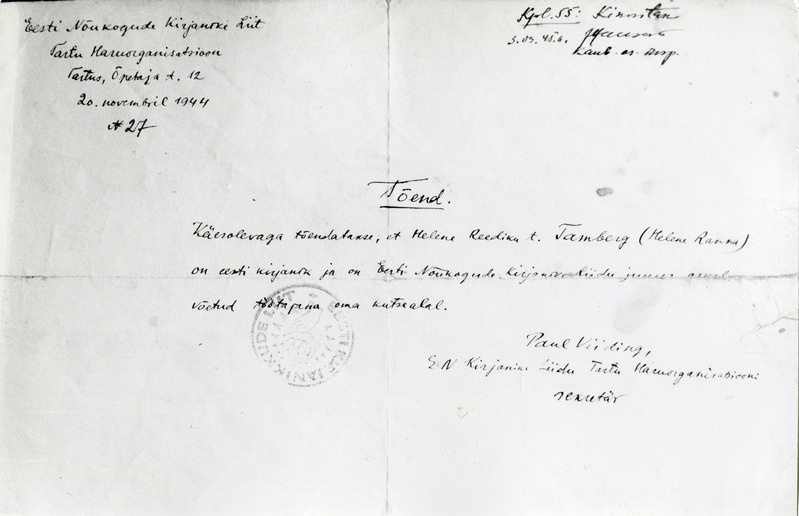 Eesti Nõukogude Kirjanike Liit
Tartu Haruorganisatsioon
Tartus, Õpetaja t. 12
20. novembril 1944
№ 27
Kpl. 55: Kinnitan
Tõend.
Käesolevaga tõendatakse, et Helene Reediku t. Tamberg (Helene Ranna)
on eesti kirjanik ja on Eesti Nõukogude Kirjanike Liidu juures arvele
võetud töötajana oma kutsealal.
EESTI KIRJANIKKUDE LIIT
Paul Viiding,
E N Kirjanike Liidu Tartu Haruorganisatsiooni
sekretär